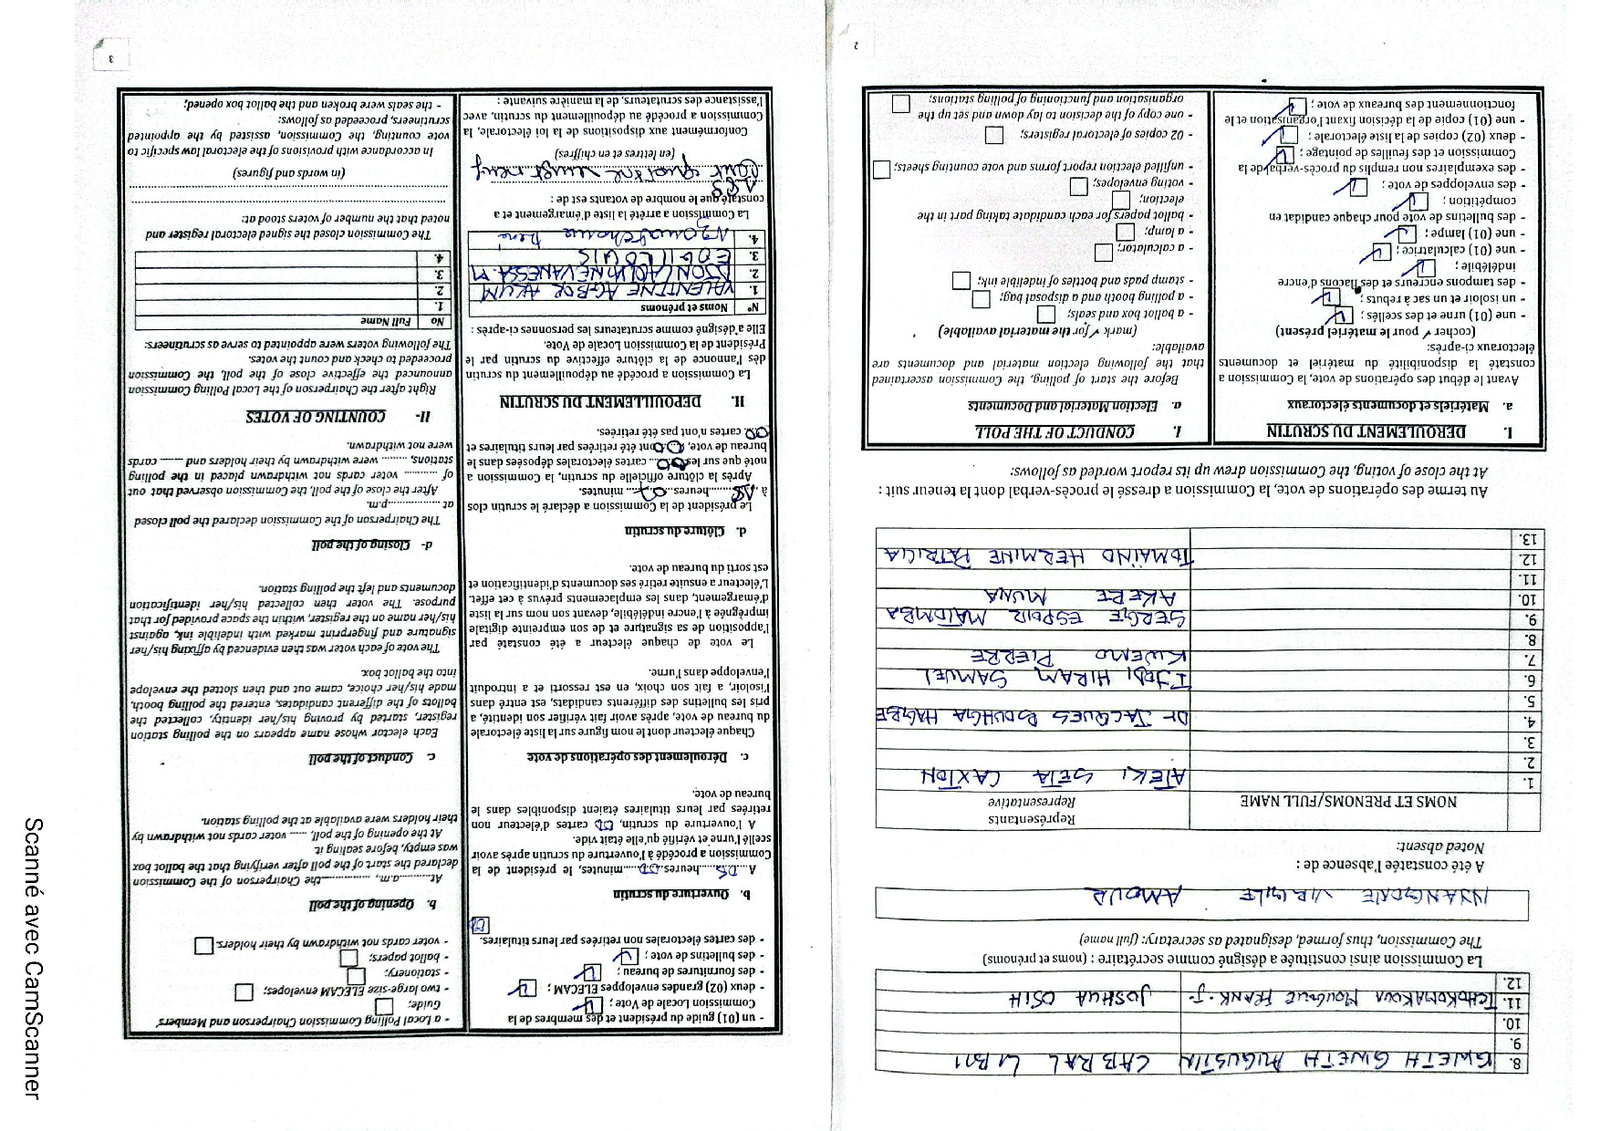 8. GWETH GWETH AUGUSTIN CABRAL LIBII
9.
10.
11. TCHOKOMAKOUA MOUGOUE FRANK-J- JOSHUA OSIH
12.
La Commission ainsi constituée a désigné comme secrétaire : (noms et prénoms)
The Commission, thus formed, designated as secretary: (full name)
VIRGILE AMOUR
A été constatée l'absence de :
Noted absent:
NOMS ET PRENOMS/FULL NAME
Représentants
Representative
1. ATEKI SETA CAXTON
2.
3.
4. Dr JACQUES BOUHGA HAGBE
5.
6. IJDDI HIRAM SAMUEL
7. KWEMO PIERRE
8.
9. SERGE ESPOIR MATOMBA
10. AKERE MUNA
11.
12. TOMAÏNO HERMINE PATRICIA
13.
Au terme des opérations de vote, la Commission a dressé le procès-verbal dont la teneur suit :
At the close of voting, the Commission drew up its report worded as follows:
I. DEROULEMENT DU SCRUTIN
a. Matériels et documents électoraux
Avant le début des opérations de vote, la Commission a
constaté la disponibilité du matériel et documents
électoraux ci-après:
(cocher ✓ pour le matériel présent)
- une (01) urne et des scellés ;
- un isoloir et un sac à rebuts ;
- des tampons encreurs et des flacons d'encre
indélébile ;
- une (01) calculatrice ;
- une (01) lampe ;
- des bulletins de vote pour chaque candidat en
compétition ;
- des enveloppes de vote ;
- des exemplaires non remplis du procès-verbal de la
Commission et des feuilles de pointage ;
- deux (02) copies de la liste électorale ;
- une (01) copie de la décision fixant l'organisation et le
fonctionnement des bureaux de vote ;
I. CONDUCT OF THE POLL
a. Election Material and Documents
Before the start of polling, the Commission ascertained
that the following election material and documents are
available:
(mark ✓ for the material available)
- a ballot box and seals;
- a polling booth and a disposal bag;
- stamp pads and bottles of indelible ink;
- a calculator;
- a lamp;
- ballot papers for each candidate taking part in the
election;
- voting envelopes;
- unfilled election report forms and vote counting sheets;
- 02 copies of electoral registers;
- one copy of the decision to lay down and set up the
organisation and functioning of polling stations;
2
- un (01) guide du président et des membres de la
Commission Locale de Vote ;
- deux (02) grandes enveloppes ELECAM ;
- des fournitures de bureau ;
- des bulletins de vote ;
- des cartes électorales non retirées par leurs titulaires.
b. Ouverture du scrutin
A...08...heures...00...minutes, le président de la
Commission a procédé à l'ouverture du scrutin après avoir
scellé l'urne et vérifié qu'elle était vide.
A l'ouverture du scrutin, 00 cartes d'électeur non
retirées par leurs titulaires étaient disponibles dans le
bureau de vote.
c. Déroulement des opérations de vote
Chaque électeur dont le nom figure sur la liste électorale
du bureau de vote, après avoir fait vérifier son identité, a
pris les bulletins des différents candidats, est entré dans
l'isoloir, a fait son choix, en est ressorti et a introduit
l'enveloppe dans l'urne.
Le vote de chaque électeur a été constaté par
l'apposition de sa signature et de son empreinte digitale
imprégnée à l'encre indélébile, devant son nom sur la liste
d'émargement, dans les emplacements prévus à cet effet.
L'électeur a ensuite retiré ses documents d'identification et
est sorti du bureau de vote.
d. Clôture du scrutin
Le président de la Commission a déclaré le scrutin clos
à ...18...heures...07...minutes.
Après la clôture officielle du scrutin, la Commission a
noté que sur les 00 cartes électorales déposées dans le
bureau de vote, 00 ont été retirées par leurs titulaires et
00 cartes n'ont pas été retirées.
II. DEPOUILLEMENT DU SCRUTIN
La Commission a procédé au dépouillement du scrutin
dès l'annonce de la clôture effective du scrutin par le
Président de la Commission Locale de Vote.
Elle a désigné comme scrutateurs les personnes ci-après :
N° Noms et prénoms
1. VALENTINE AGBOR AKUM
2. VANESSA.M
3. LOUIS
4. René
La Commission a arrêté la liste d'émargement et a
constaté que le nombre de votants est de :
189
Cent quatre vingt neuf
(en lettres et en chiffres)
Conformément aux dispositions de la loi électorale, la
Commission a procédé au dépouillement du scrutin, avec
l'assistance des scrutateurs, de la manière suivante :
- a Local Polling Commission Chairperson and Members'
Guide;
- two large-size ELECAM envelopes;
- stationery;
- ballot papers;
- voter cards not withdrawn by their holders.
b. Opening of the poll
At............a.m., ...............the Chairperson of the Commission
declared the start of the poll after verifying that the ballot box
was empty, before sealing it.
At the opening of the poll, ...... voter cards not withdrawn by
their holders were available at the polling station.
c. Conduct of the poll
Each elector whose name appears on the polling station
register, started by proving his/her identity, collected the
ballots of the different candidates, entered the polling booth,
made his/her choice, came out and then slotted the envelope
into the ballot box.
The vote of each voter was then evidenced by affixing his/her
signature and fingerprint marked with indelible ink, against
his/her name on the register, within the space provided for that
purpose. The voter then collected his/her identification
documents and left the polling station.
d- Closing of the poll
The Chairperson of the Commission declared the poll closed
at ....................p.m.
After the close of the poll, the Commission observed that out
of ............ voter cards not withdrawn placed in the polling
stations, ......... were withdrawn by their holders and ........ cards
were not withdrawn.
II- COUNTING OF VOTES
Right after the Chairperson of the Local Polling Commission
announced the effective close of the poll, the Commission
proceeded to check and count the votes.
The following voters were appointed to serve as scrutineers:
No Full Name
1.
2.
3.
4.
The Commission closed the signed electoral register and
noted that the number of voters stood at:
(in words and figures)
In accordance with provisions of the electoral law specific to
vote counting, the Commission, assisted by the appointed
scrutineers, proceeded as follows:
- the seals were broken and the ballot box opened;
3
Scanné avec CamScanner